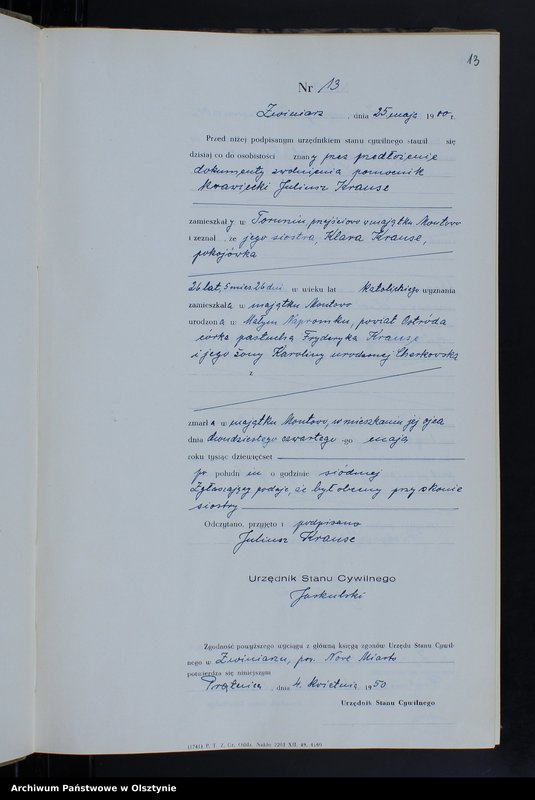 13
Nr 13
Zwiniarz, dnia 25 maja 1900 r.
Przed niżej podpisanym urzędnikiem stanu cywilnego stawił się
dzisiaj co do osobistości znany przez przedłożenie
dokumenty zwolnienia pomocnik
krawiecki Juliusz Krause
zamieszkały w Toruniu, przejściowo w majątku Montowo
i zeznał, że jego siostra, Klara Krause,
pokojówka
26 lat, 5 mies. 26 dni w wieku lat katolickiego wyznania
zamieszkała w majątku Montowo
urodzona w Małym Napromku, powiat Ostróda
córka pastucha Fryderyka Krause
i jego żony Karoliny urodzonej
z
zmarła w majątku Montowo, w mieszkaniu jej ojca
dnia dwudziestego czwartego -go maja
roku tysiąc dziewięćset
po połudn iu o godzinie siódmej
Zgłaszający podaje, że był obecny przy skonie
siostry
Odczytano, przyjęto i podpisano
Juliusz Krause
Urzędnik Stanu Cywilnego
Jaskulski
Zgodność powyższego wyciągu z główną księgą zgonów Urzędu Stanu Cywil-
nego w Zwiniarzu, pow. Nowe Miasto
potwierdza się niniejszym
Prątnica, dnia 4. kwietnia 1950
Urzędnik Stanu Cywilnego
Archiwum Państwowe w Olsztynie